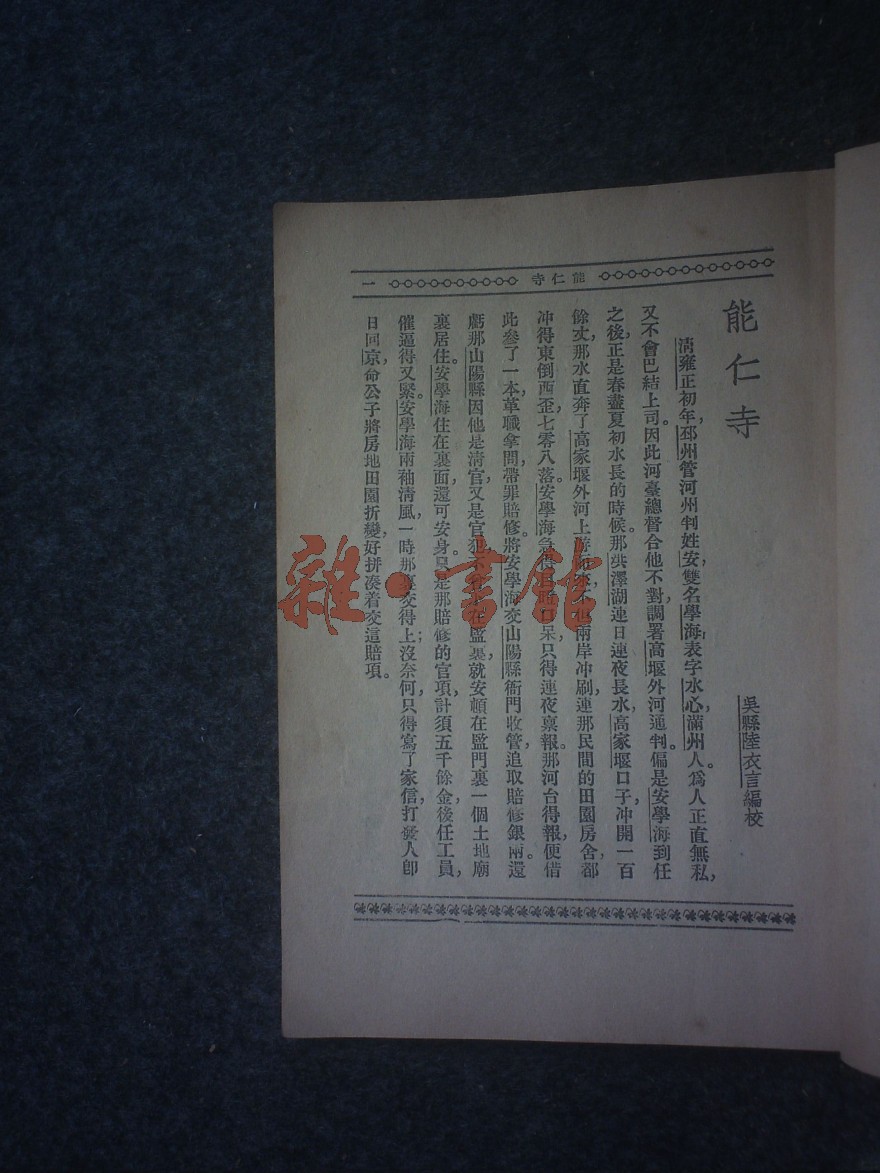 能仁寺
一
能仁寺
吳縣陸衣言編校
清雍正初年，邳州管河州判姓安，雙名學海，表字水心，滿州人。爲人正直無私，
又不會巴結上司。因此河臺總督合他不對，調署高堰外河通判。偏是安學海到任
之後，正是春盡夏初水長的時候。那洪澤湖連日連夜長水，高家堰口子，冲開一百
餘丈，那水直奔了高家堰外河上游而來，不但兩岸冲刷，連那民間的田園房舍，都
冲得東倒西歪，七零八落。安學海急得目瞪口呆，只得連夜稟報。那河台得報，便借
此參了一本，革職拿問，帶罪賠修。將安學海交山陽縣衙門收管，追取賠修銀兩。還
虧那山陽縣因他是清官，又是官犯，不在監裏，就安頓在監門裏一個土地廟
裏居住。安學海住在裏面，還可安身。只是那賠修的官項，計須五千餘金，後任工員，
催逼得又緊。安學海兩袖清風，一時那裏交得上；沒奈何，只得寫了家信，打發人卽
日回京，命公子將房地田園折變，好拼湊着交這賠項。
雜·書館